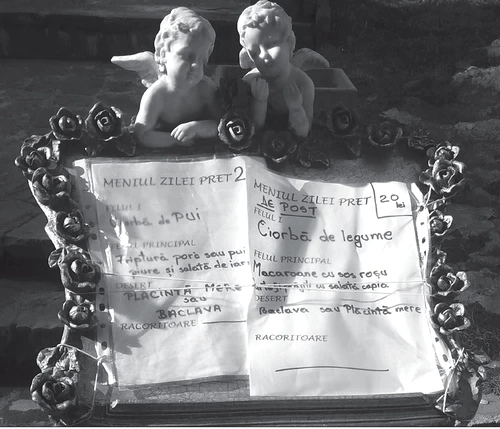 MENIUL ZILEI PRET 2
FELUL I
Ciorbă de pui
FELUL PRINCIPAL
Friptură porc sau pui
piure și salată de
DESERT
PLACINTĂ MERE
sau
BACLAVA
RACORITOARE
MENIUL ZILEI PRET 20 lei
DE POST
FELUL I
Ciorbă de legume
FELUL PRINCIPAL
Macaroane cu sos roșu
cu salată
DESERT
Baclava sau Plăcintă mere
RACORITOARE